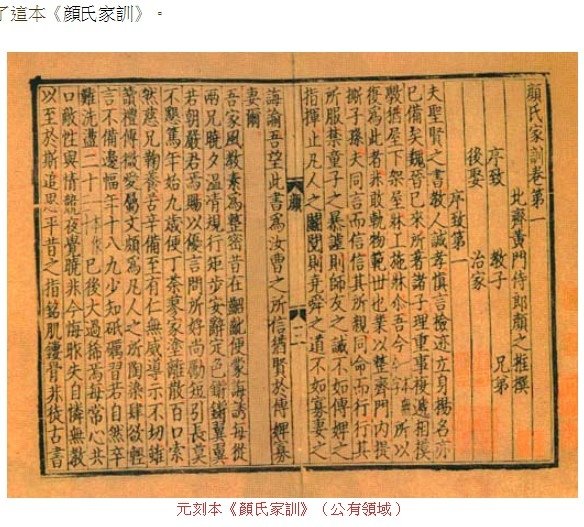 了這本《顏氏家訓》。
顏氏家訓卷第一
北齊黃門侍郎顏之推撰
序致 教子 兄弟
後娶 治家
序致第一
夫聖賢之書教人誠孝慎言檢迹立身揚名亦
已備矣魏晉已來所著諸子理重事複遞相模
斆猶屋下架屋牀上施牀爾吾今 所以
復為此者非敢軌物範世也業以整齊門內提
撕子孫夫同言而信信其所親同命而行行其
所服禁童子之暴謔則師友之誡不如傅婢之
指揮止凡人之鬭鬩則堯舜之道不如寡妻之
誨諭吾望此書為汝曹之所信猶賢於傅婢寡
妻爾
顏 二
吾家風教素為整密昔在齠齔便蒙誨誘每從
兩兄曉夕溫凊規行矩步安辭定色鏘鏘翼翼
若朝嚴君焉賜以優言問所好尚勵短引長莫
不懇篤年始九歲便丁荼蓼家塗離散百口索
然慈兄鞠養苦辛備至有仁無威導示不切雖
讀禮傳微愛屬文頗為凡人之所陶染肆欲輕
言不備邊幅年十八九少知砥礪習若自然卒
難洗盪二十 已後大過稀焉每常心共
口敵性與情競夜覺曉非今悔昨失自憐無教
以至於斯追思平昔之指銘肌鏤骨非徒古書
元刻本《顏氏家訓》（公有領域）